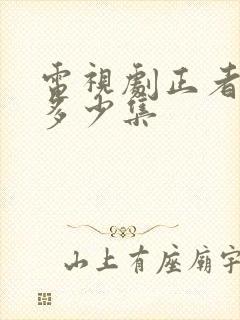 電視劇正者
多少集
山上有座廟宇